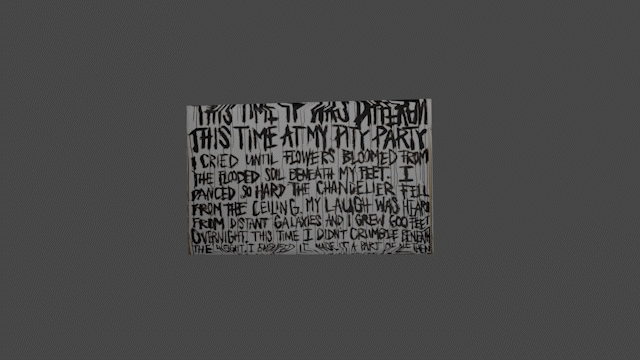 THIS TIME IT WAS DIFFERENT
THIS TIME AT MY PITY PARTY
I CRIED UNTIL FLOWERS BLOOMED FROM
THE FLOODED SOIL BENEATH MY FEET. I
DANCED SO HARD THE CHANDELIER FELL
FROM THE CEILING. MY LAUGH WAS HEARD
FROM DISTANT GALAXIES AND I GREW 600 FEET
OVERNIGHT. THIS TIME I DIDN'T CRUMBLE BENEATH
THE WEIGHT. I IT MADE IT A PART OF ME